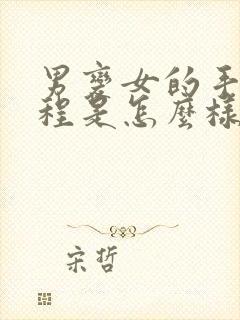 男變女的手
程是怎麼樣
宋哲